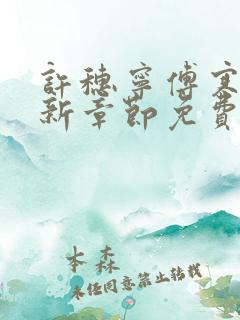 許穗寧傅寒
新章節免費
本森
未任同意禁止转载